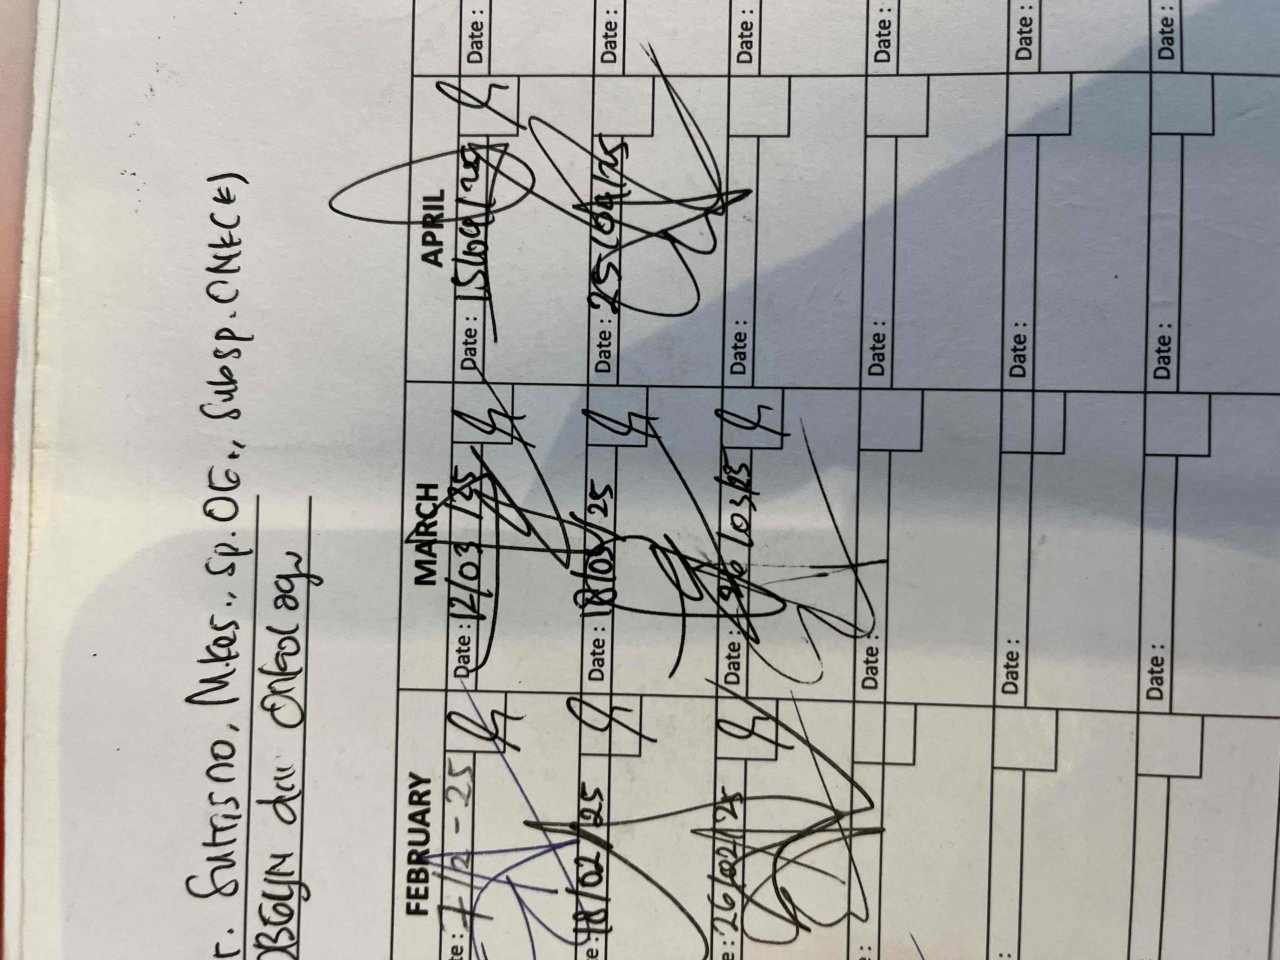 r. Sutrisno, Mkes., Sp.OG., Subsp.ONK(K)
OBSGYN dan Onkologi
FEBRUARY MARCH APRIL
te: 7/2-25 Date: 12/03/25 Date: 15/04/25 Date:
e: 18/02/25 Date: 18/03/25 Date: 25/04/25 Date:
e: 26/02/25 Date: 26/03/25 Date: Date:
e: Date: Date: Date:
: Date: Date: Date:
Date: Date: Date: